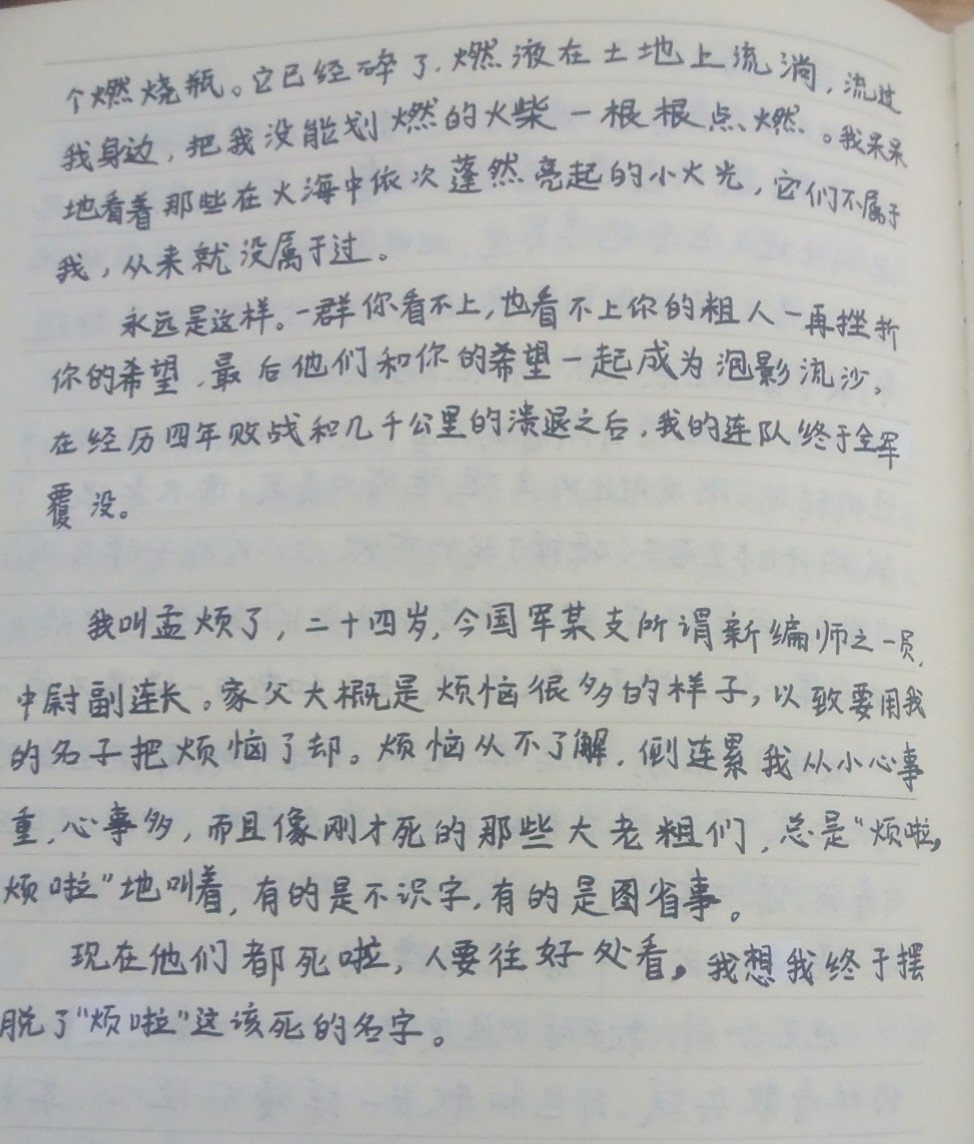 个燃烧瓶。它已经碎了，燃液在土地上流淌，流过
我身边，把我没能划燃的火柴一根根点燃。我呆呆
地看着那些在火海中依次蓬然亮起的小火光，它们不属于
我，从来就没属于过。
永远是这样。一群你看不上，也看不上你的粗人一再挫折
你的希望，最后他们和你的希望一起成为泡影流沙。
在经历四年败战和几千公里的溃退之后，我的连队终于全军
覆没。
我叫孟烦了，二十四岁，今国军某支所谓新编师之一员，
中尉副连长。家父大概是烦恼很多的样子，以致要用我
的名子把烦恼了却。烦恼从不了解，倒连累我从小心事
重，心事多，而且像刚才死的那些大老粗们，总是“烦啦，
烦啦”地叫着，有的是不识字，有的是图省事。
现在他们都死啦，人要往好处看，我想我终于摆
脱了“烦啦”这该死的名字。